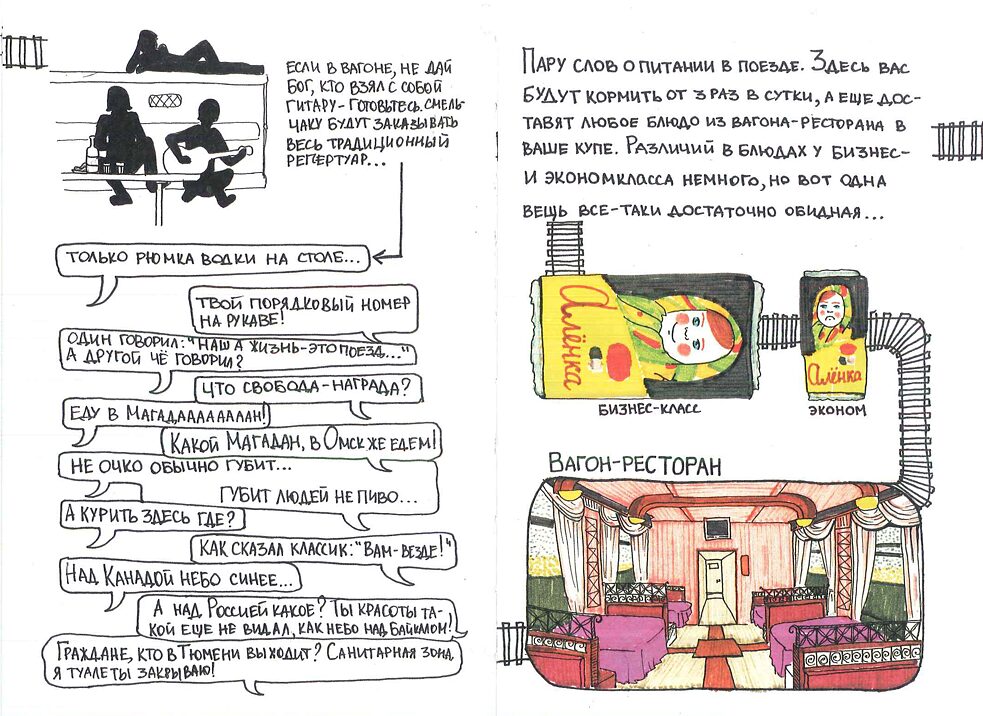 ЕСЛИ В ВАГОНЕ, НЕ ДАЙ
БОГ, КТО ВЗЯЛ С СОБОЙ
ГИТАРУ - ГОТОВЬТЕСЬ. СМЕЛЬ-
ЧАКУ БУДУТ ЗАКАЗЫВАТЬ
ВЕСЬ ТРАДИЦИОННЫЙ
РЕПЕРТУАР...
ТОЛЬКО РЮМКА ВОДКИ НА СТОЛЕ...
ТВОЙ ПОРЯДКОВЫЙ НОМЕР
НА РУКАВЕ!
ОДИН ГОВОРИЛ: "НАША ЖИЗНЬ-ЭТО ПОЕЗД..."
А ДРУГОЙ ЧЁ ГОВОРИЛ?
ЧТО СВОБОДА-НАГРАДА?
ЕДУ В МАГАДАААААААЛАН!
КАКОЙ МАГАДАН, В ОМСК ЖЕ ЕДЕМ!
НЕ ОЧКО ОБЫЧНО ГУБИТ...
ГУБИТ ЛЮДЕЙ НЕ ПИВО...
А КУРИТЬ ЗДЕСЬ ГДЕ?
КАК СКАЗАЛ КЛАССИК: "ВАМ-ВЕЗДЕ!"
НАД КАНАДОЙ НЕБО СИНЕЕ...
А НАД РОССИЕЙ КАКОЕ? ТЫ КРАСОТЫ ТА-
КОЙ ЕЩЕ НЕ ВИДАЛ, КАК НЕБО НАД БАЙКАЛОМ!
ГРАЖДАНЕ, КТО В ТЮМЕНИ ВЫХОДИТ? САНИТАРНАЯ ЗОНА,
Я ТУАЛЕТЫ ЗАКРЫВАЮ!
ПАРУ СЛОВ О ПИТАНИИ В ПОЕЗДЕ. ЗДЕСЬ ВАС
БУДУТ КОРМИТЬ ОТ 3 РАЗ В СУТКИ, А ЕЩЕ ДОС-
ТАВЯТ ЛЮБОЕ БЛЮДО ИЗ ВАГОНА-РЕСТОРАНА В
ВАШЕ КУПЕ. РАЗЛИЧИЙ В БЛЮДАХ У БИЗНЕС-
И ЭКОНОМКЛАССА НЕМНОГО, НО ВОТ ОДНА
ВЕЩЬ ВСЕ-ТАКИ ДОСТАТОЧНО ОБИДНАЯ...
Алёнка
Алёнка
БИЗНЕС-КЛАСС
ЭКОНОМ
ВАГОН-РЕСТОРАН